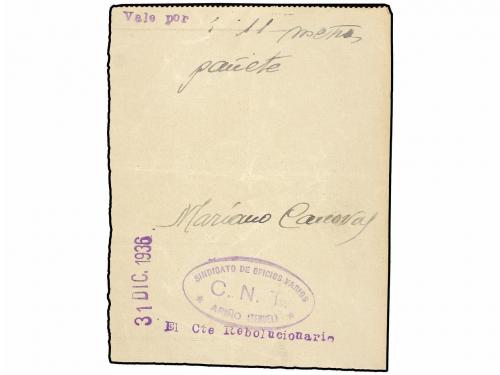 Vale por 11 metros
pañete
Mariano Canovas
31 DIC. 1936
SINDICATO DE OFICIOS VARIOS
C. N. T.
ARIÑO (TERUEL)
El Cte Rebolucionario